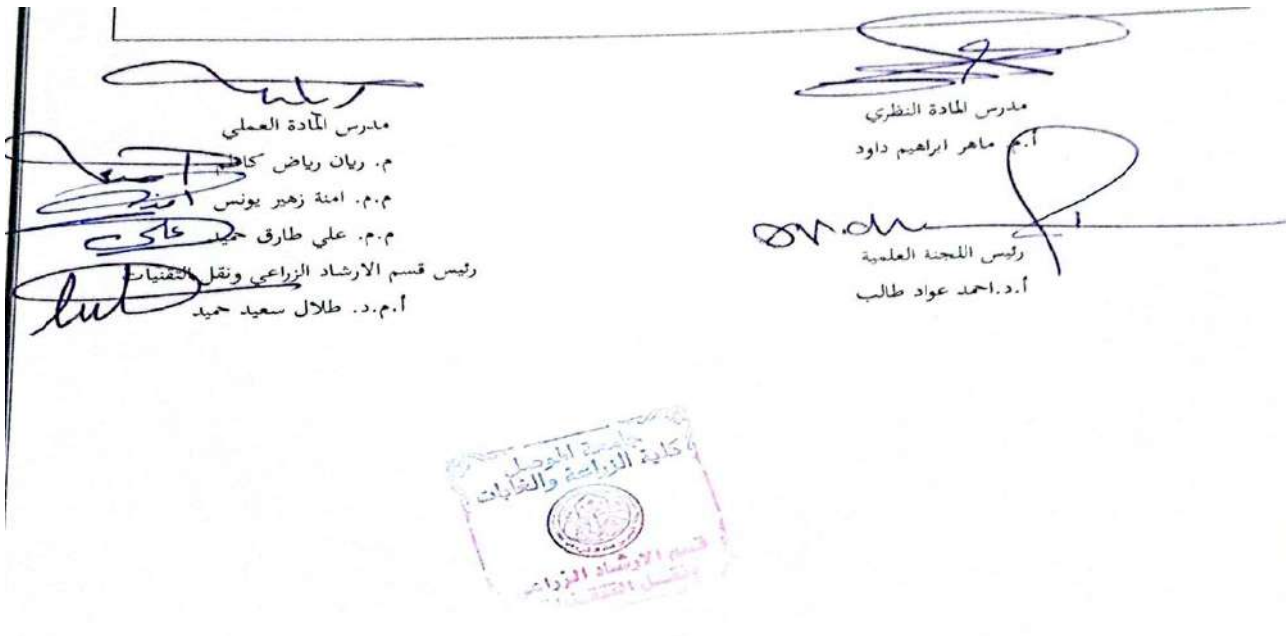 مدرس المادة النظري
أ.م. ماهر ابراهيم داود
رئيس اللجنة العلمية
أ.د.احمد عواد طالب
ريان
مدرس المادة العملي
م. ريان رياض كاظم
م.م. امنة زهير يونس
امنة
م.م. علي طارق حميد
علي
رئيس قسم الارشاد الزراعي ونقل التقنيات
أ.م.د. طلال سعيد حميد
جامعة الموصل
كلية الزراعة والغابات
قسم الارشاد الزراعي
ونقل التقنيات